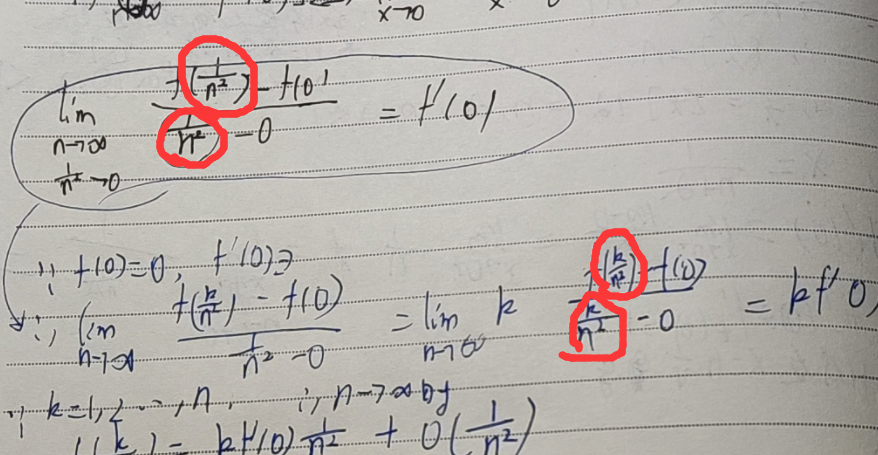 x→0
lim n→∞ 1/n²→0 (f(1/n²) - f(0)) / (1/n² - 0) = f'(0)
∵ f(0)=0, f'(0)∃
∴ lim n→∞ (f(k/n²) - f(0)) / (1/n² - 0) = lim n→∞ k (f(k/n²) - f(0)) / (k/n² - 0) = kf'(0)
∵ k=1,2⋯,n, ∴ n→∞时
kf'(0) 1/n² + o(1/n²)